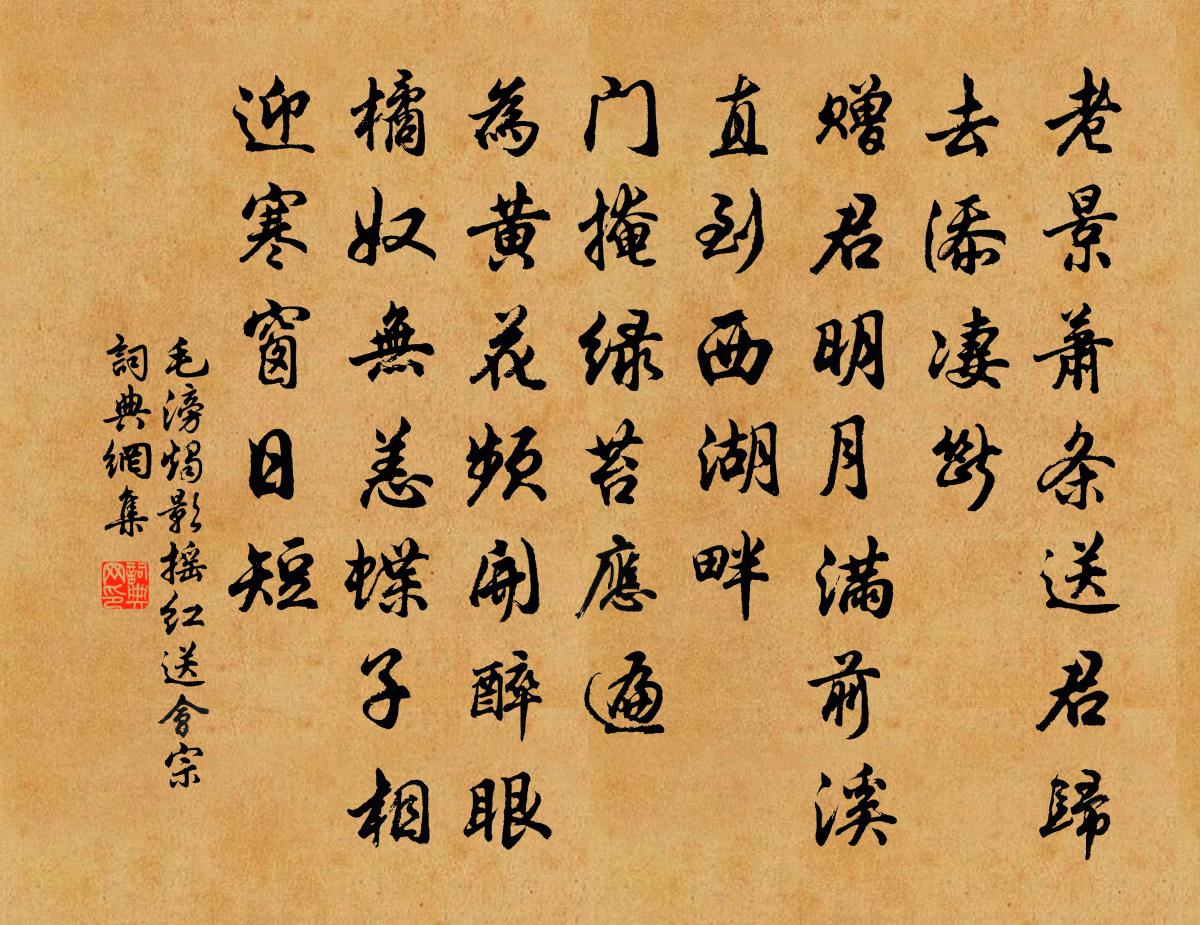 老景萧条送君歸
去添凄断
赠君明月满前溪
直到西湖畔
门掩绿苔應遍
為黄花频開醉眼
橘奴無恙蝶子相
迎寒窗日短
毛滂燭影摇红送會宗
詞典網集
詞典网印